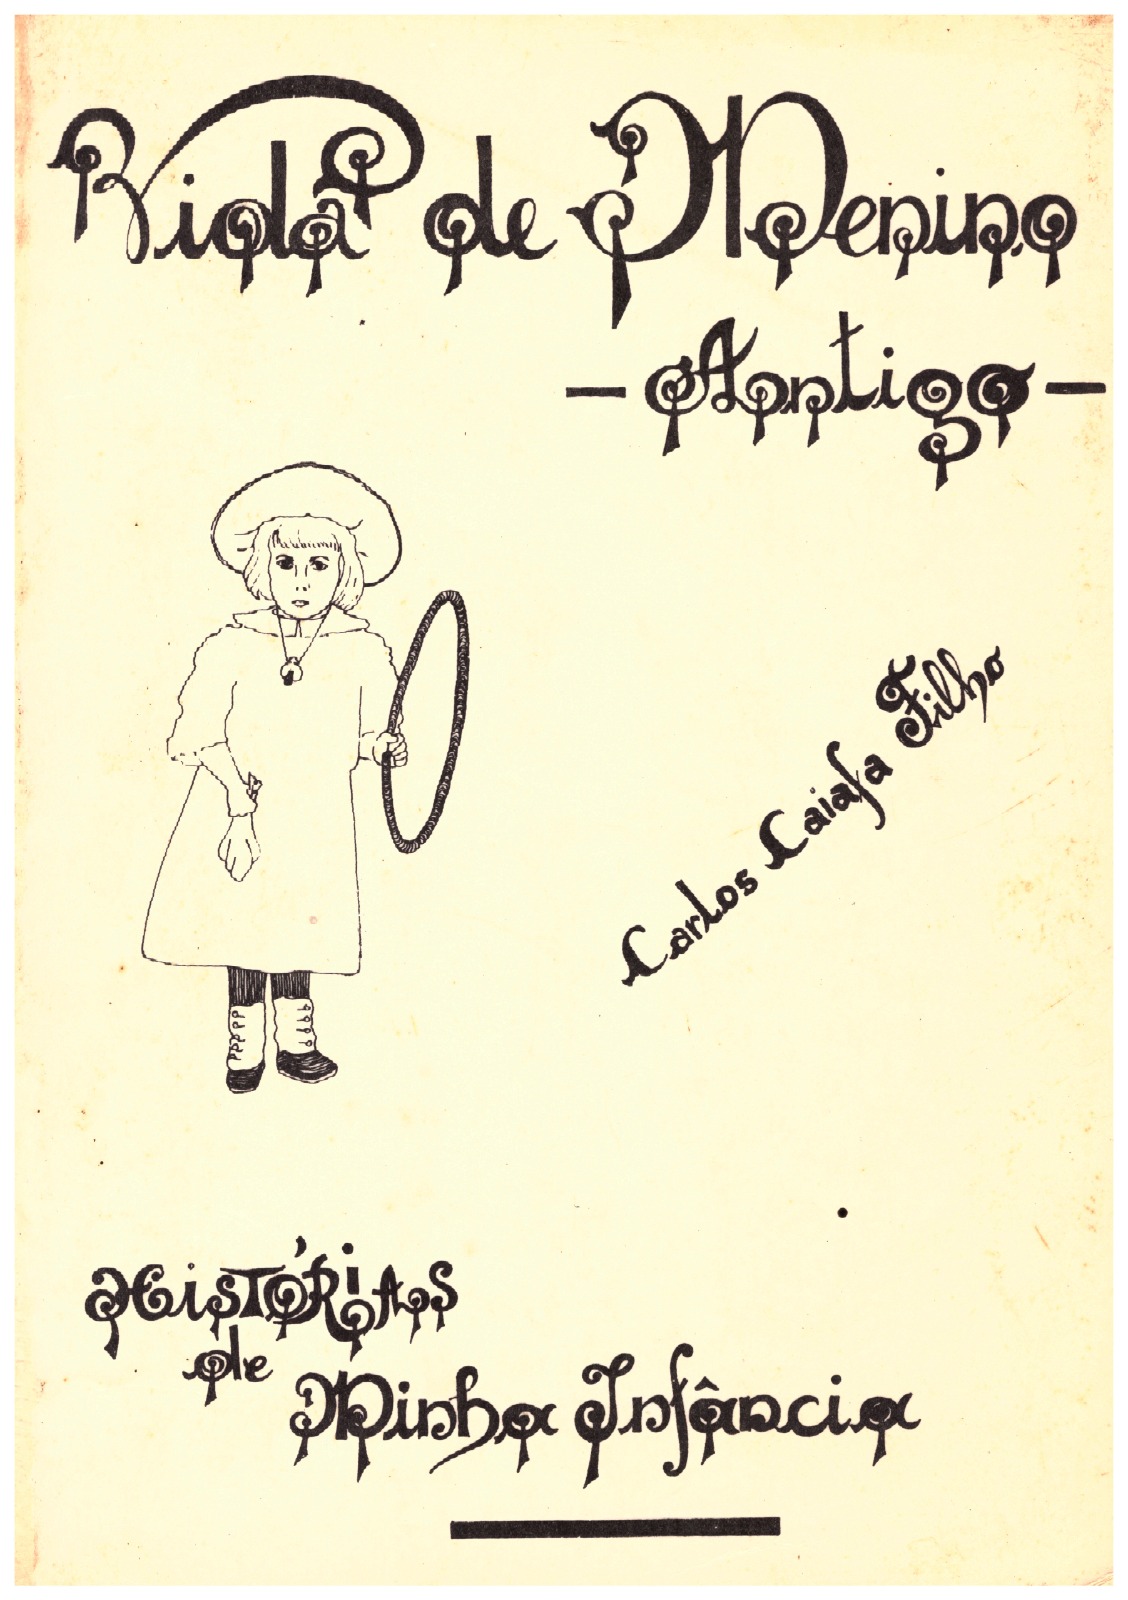 Vida de Menino
- Antigo -
Carlos Caiafa Filho
HISTÓRiAS
de
Minha Infância